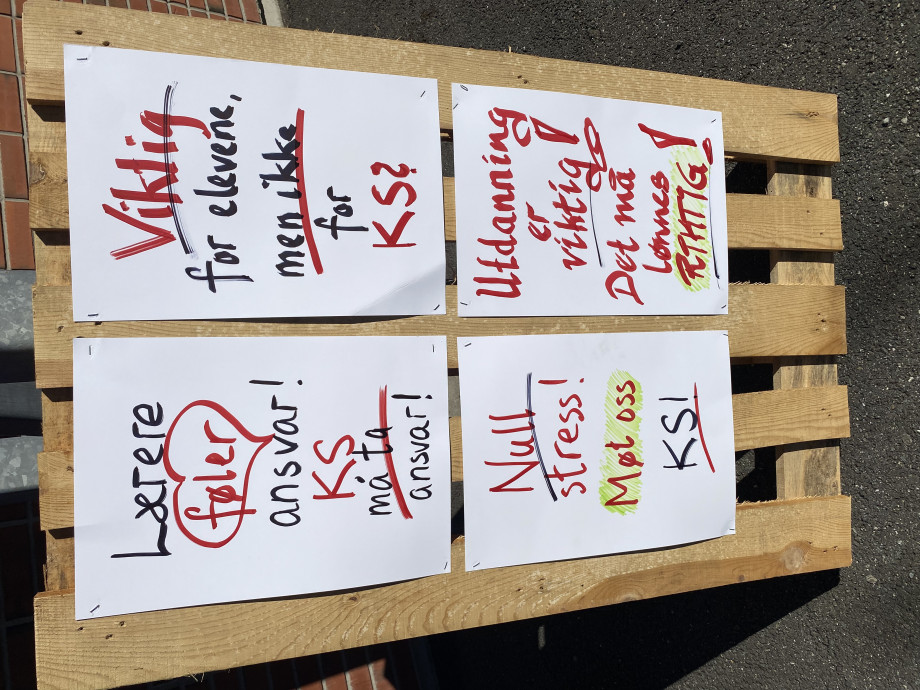 Lærere
føler
ansvar!
KS
må ta
ansvar!
Viktig
for elevene,
men ikke
for
KS?
Null
stress!
Møt oss
KS!
Utdanning
er
viktig!
Det må
lønnes
RIKTIG!